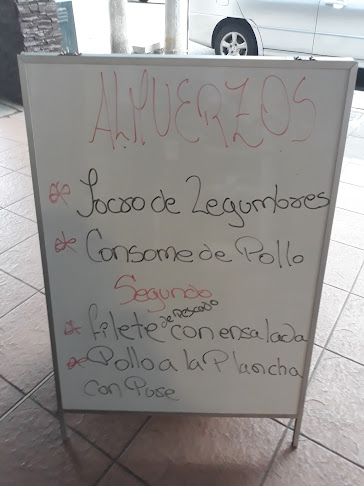 ALMUERZOS
* Locro de Legumbres
* Consome de Pollo
Segundo
* filete de Pescado con ensalada
* Pollo a la Plancha
con Pure